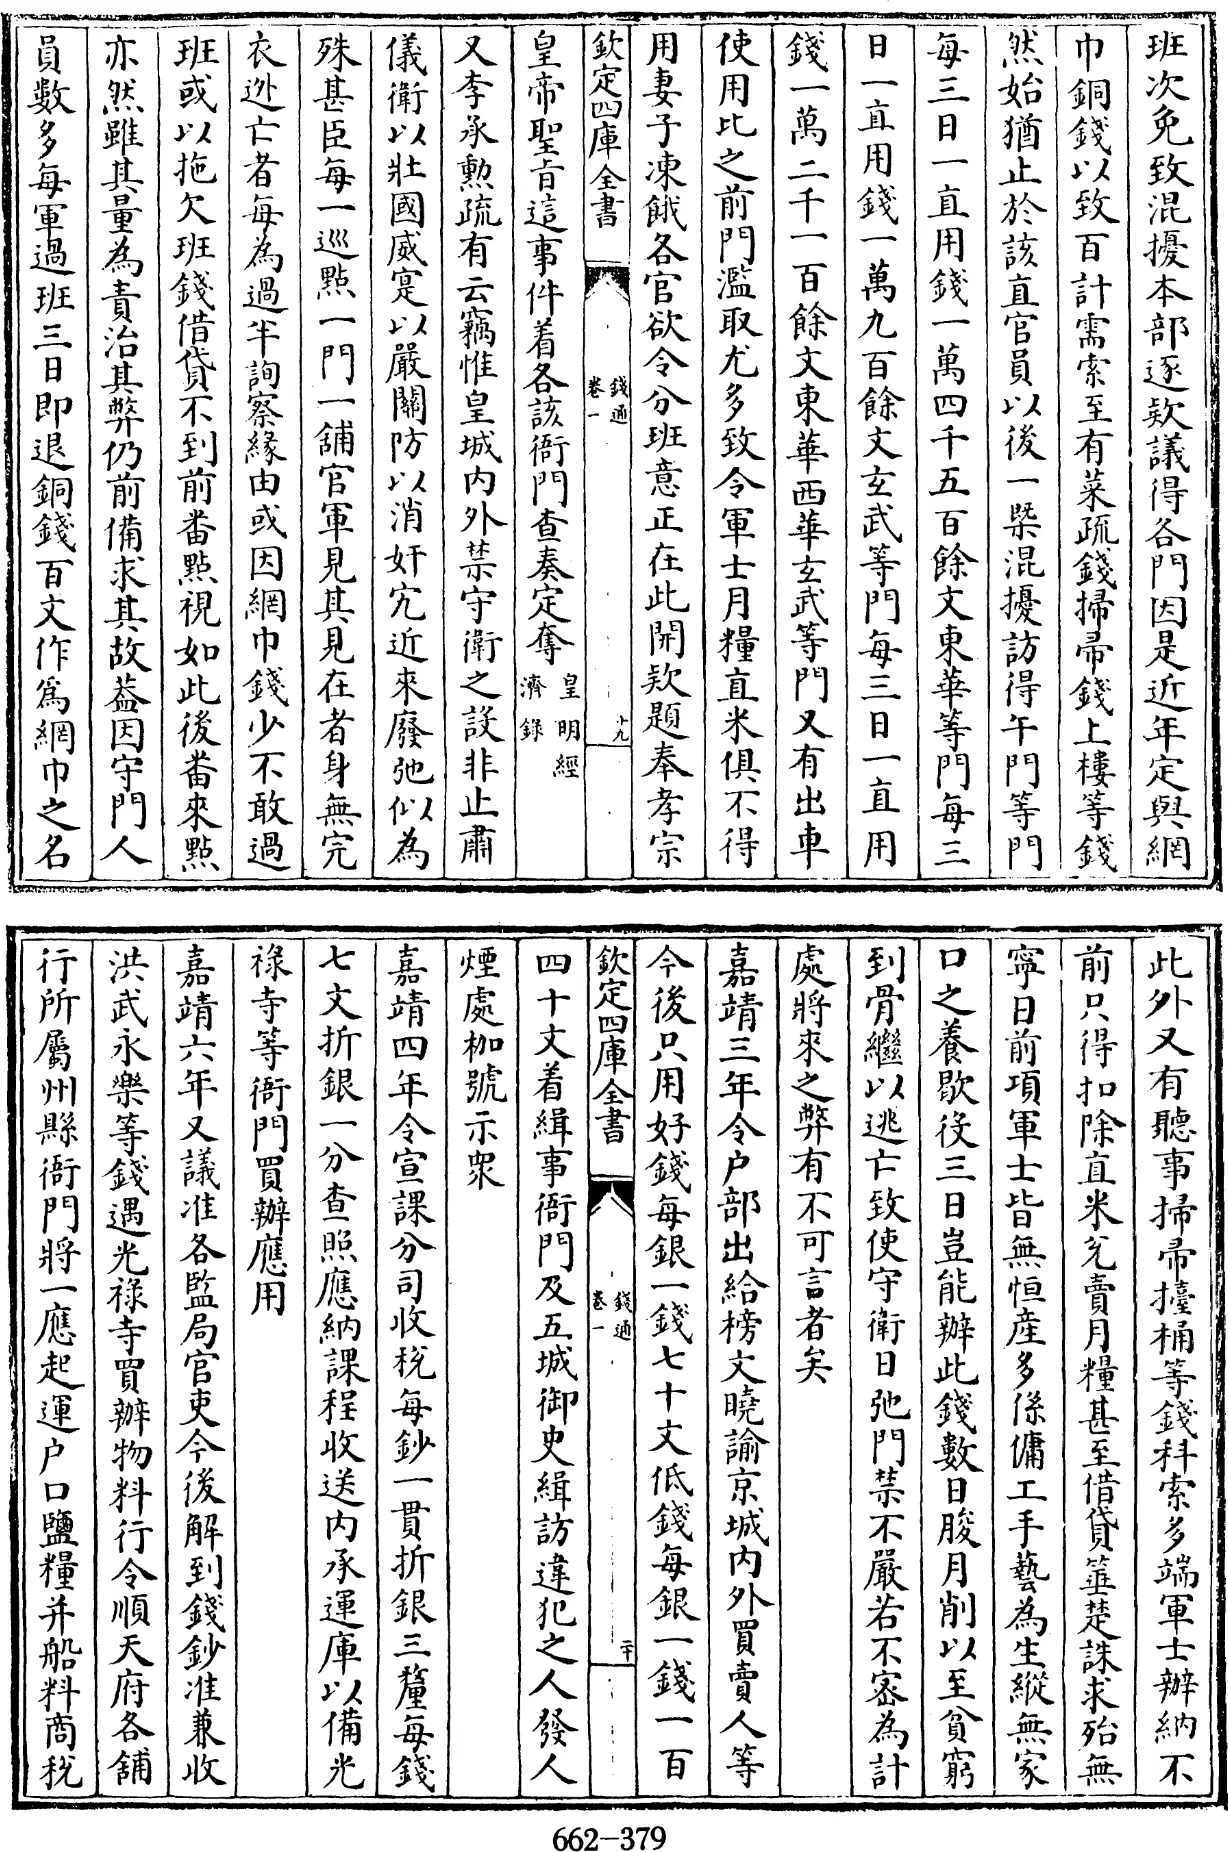 班次免致混擾本部逐欵議得各門因是近年定與網
巾銅錢以致百計需索至有菜疏錢掃帚錢上樓等錢
然始猶止於該直官員以後一槩混擾訪得午門等門
每三日一直用錢一萬四千五百餘文東華等門每三
日一直用錢一萬九百餘文玄武等門每三日一直用
錢一萬二千一百餘文東華西華玄武等門又有出車
使用比之前門濫取尤多致令軍士月糧直米俱不得
用妻子凍餓各官欲令分班意正在此開欵題奉孝宗
欽定四庫全書
錢通
卷一
十九
皇帝聖旨這事件着各該衙門查奏定奪
皇明經
濟錄
又李承勲疏有云竊惟皇城内外禁守衛之設非止肅
儀衛以壯國威寔以嚴關防以消奸宄近來廢弛似為
殊甚臣每一巡點一門一舖官軍見其見在者身無完
衣迯亡者每為過半詢察緣由或因網巾錢少不敢過
班或以拖欠班錢借貸不到前番點視如此後番來點
亦然雖其量為責治其弊仍前備求其故葢因守門人
員數多每軍過班三日即退銅錢百文作爲網巾之名
此外又有聽事掃帚擡桶等錢科索多端軍士辦納不
前只得扣除直米兊賣月糧甚至借貸箠楚誅求殆無
寧日前項軍士皆無恒産多係傭工手藝為生縱無家
口之養歇役三日豈能辦此錢數日朘月削以至貧窮
到骨繼以逃亡致使守衛日弛門禁不嚴若不宻為計
處將來之弊有不可言者矣
嘉靖三年令户部出給榜文曉諭京城内外買賣人等
今後只用好錢每銀一錢七十文低錢每銀一錢一百
欽定四庫全書
錢通
卷一
二十
四十文着緝事衙門及五城御史緝訪違犯之人發人
煙處枷號示衆
嘉靖四年令宣課分司收稅每鈔一貫折銀三釐每錢
七文折銀一分查照應納課程收送内承運庫以備光
祿寺等衙門買辦應用
嘉靖六年又議准各監局官吏今後解到錢鈔准兼收
洪武永樂等錢遇光祿寺買辦物料行令順天府各舖
行所屬州縣衙門將一應起運户口鹽糧并船料商稅
662-379